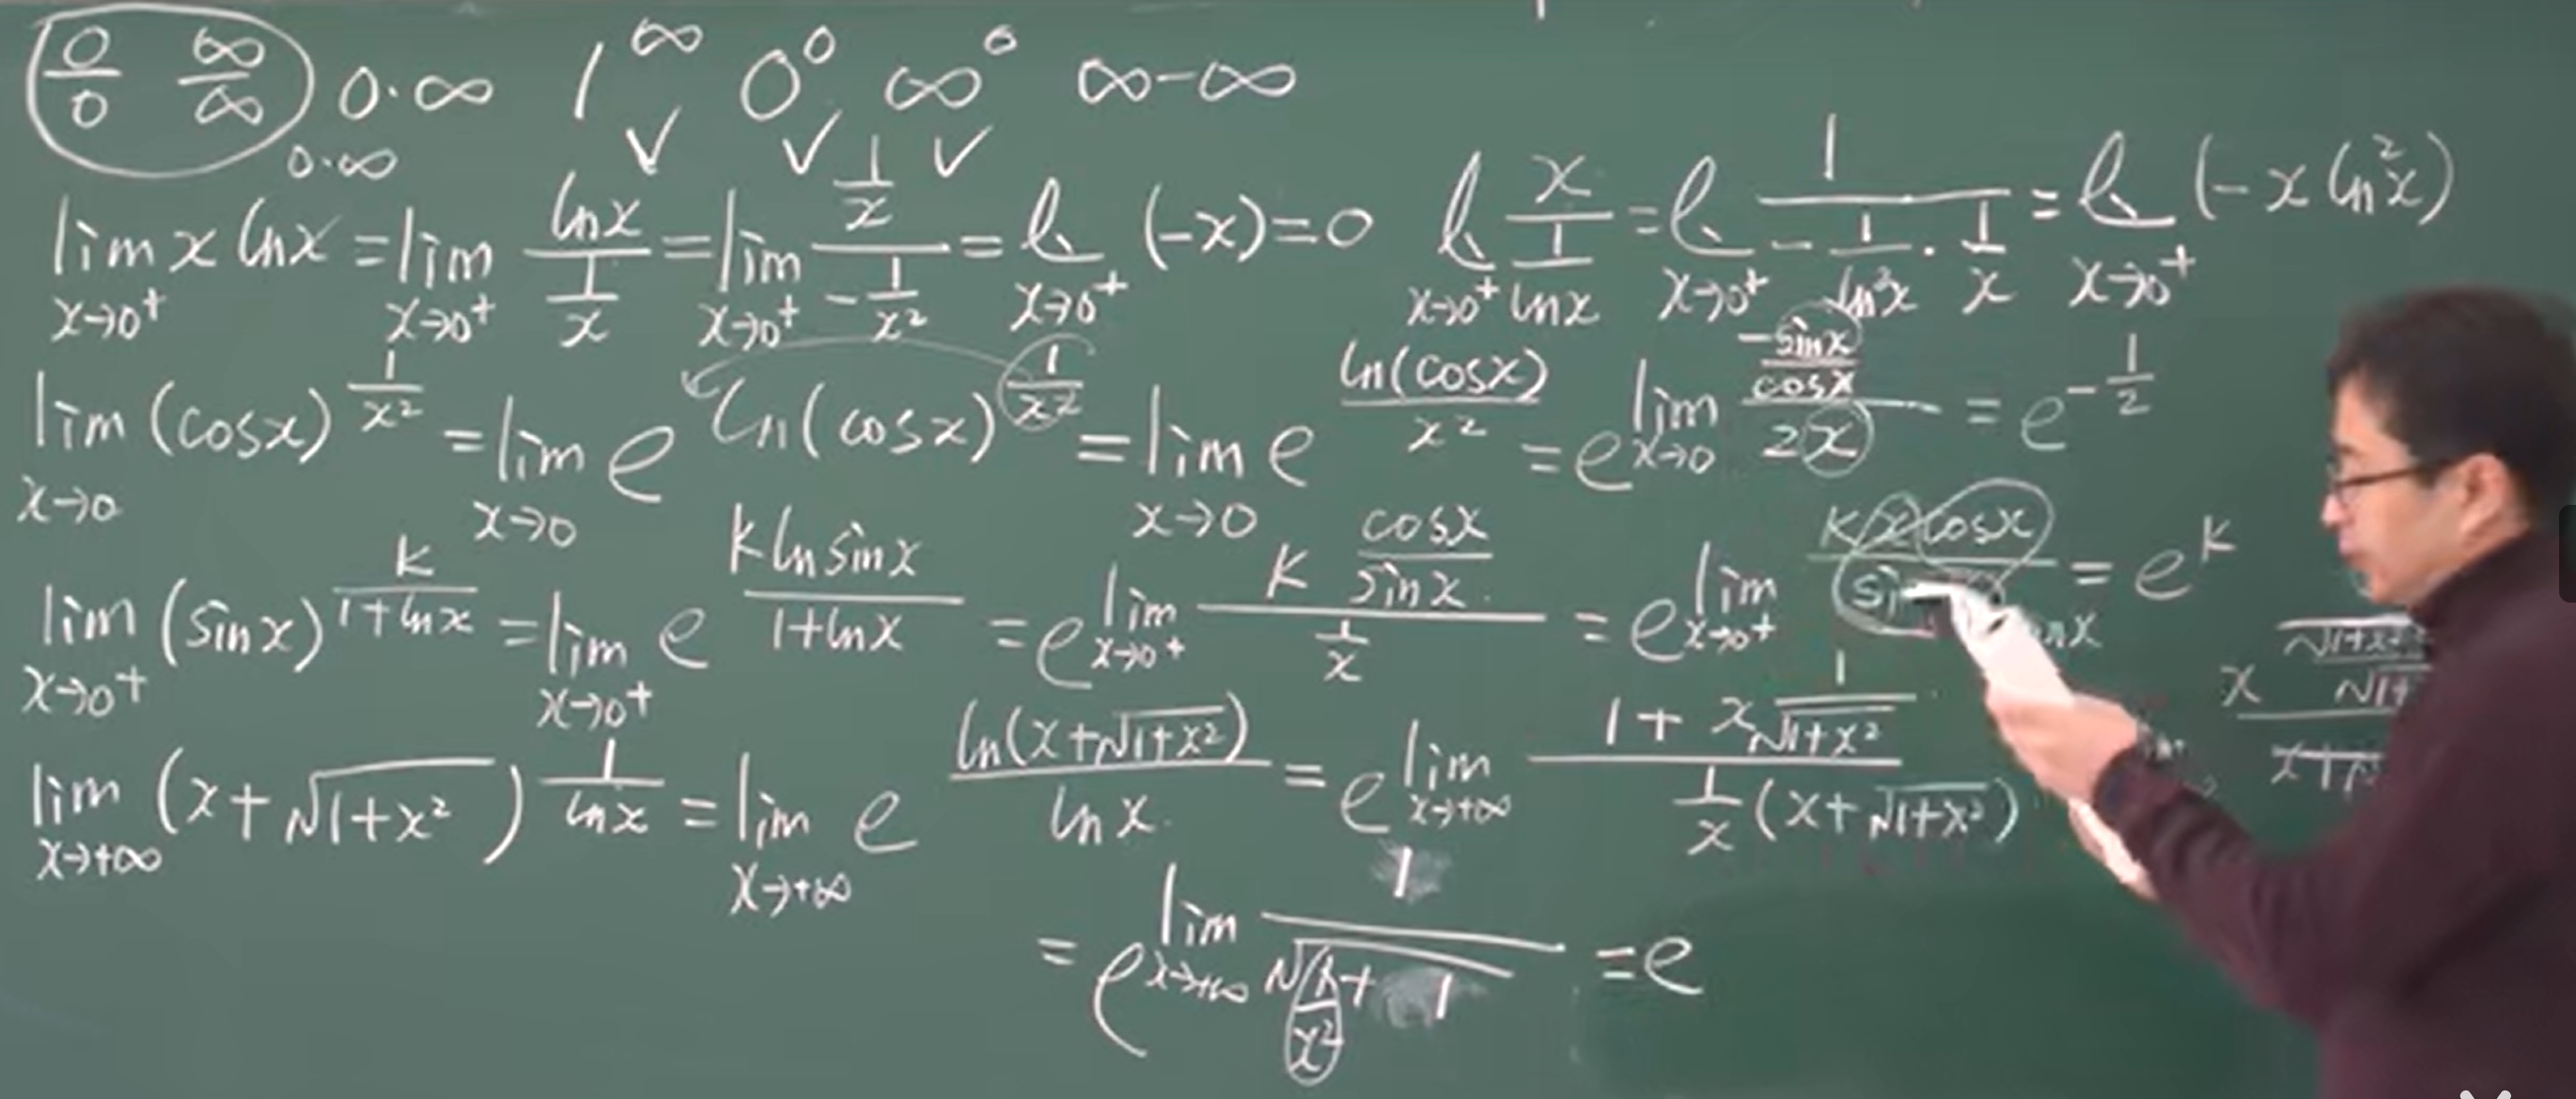 0/0 ∞/∞ 0·∞ 1^∞ 0^0 ∞^0 ∞-∞
0·∞ ✓ ✓ ✓
lim_{x→0+} x lnx = lim_{x→0+} lnx/(1/x) = lim_{x→0+} (1/x)/(-1/x²) = lim_{x→0+} (-x) = 0
lim_{x→0+} x/(1/lnx) = lim_{x→0+} 1/(-1/ln²x · 1/x) = lim_{x→0+} (-x ln²x)
lim_{x→0} (cosx)^{1/x²} = lim_{x→0} e^{ln(cosx)^{1/x²}} = lim_{x→0} e^{ln(cosx)/x²} = e^{lim_{x→0} (-sinx/cosx)/(2x)} = e^{-1/2}
lim_{x→0+} (sinx)^{k/(1+lnx)} = lim_{x→0+} e^{k ln sinx/(1+lnx)} = e^{lim_{x→0+} (k cosx/sinx)/(1/x)} = e^{lim_{x→0+} kx cosx/si} = e^k
lim_{x→+∞} (x+√(1+x²))^{1/lnx} = lim_{x→+∞} e^{ln(x+√(1+x²))/lnx} = e^{lim_{x→+∞} (1+x 1/√(1+x²))/(1/x (x+√(1+x²)))}
= e^{lim_{x→+∞} 1/√(1/x²+1)} = e